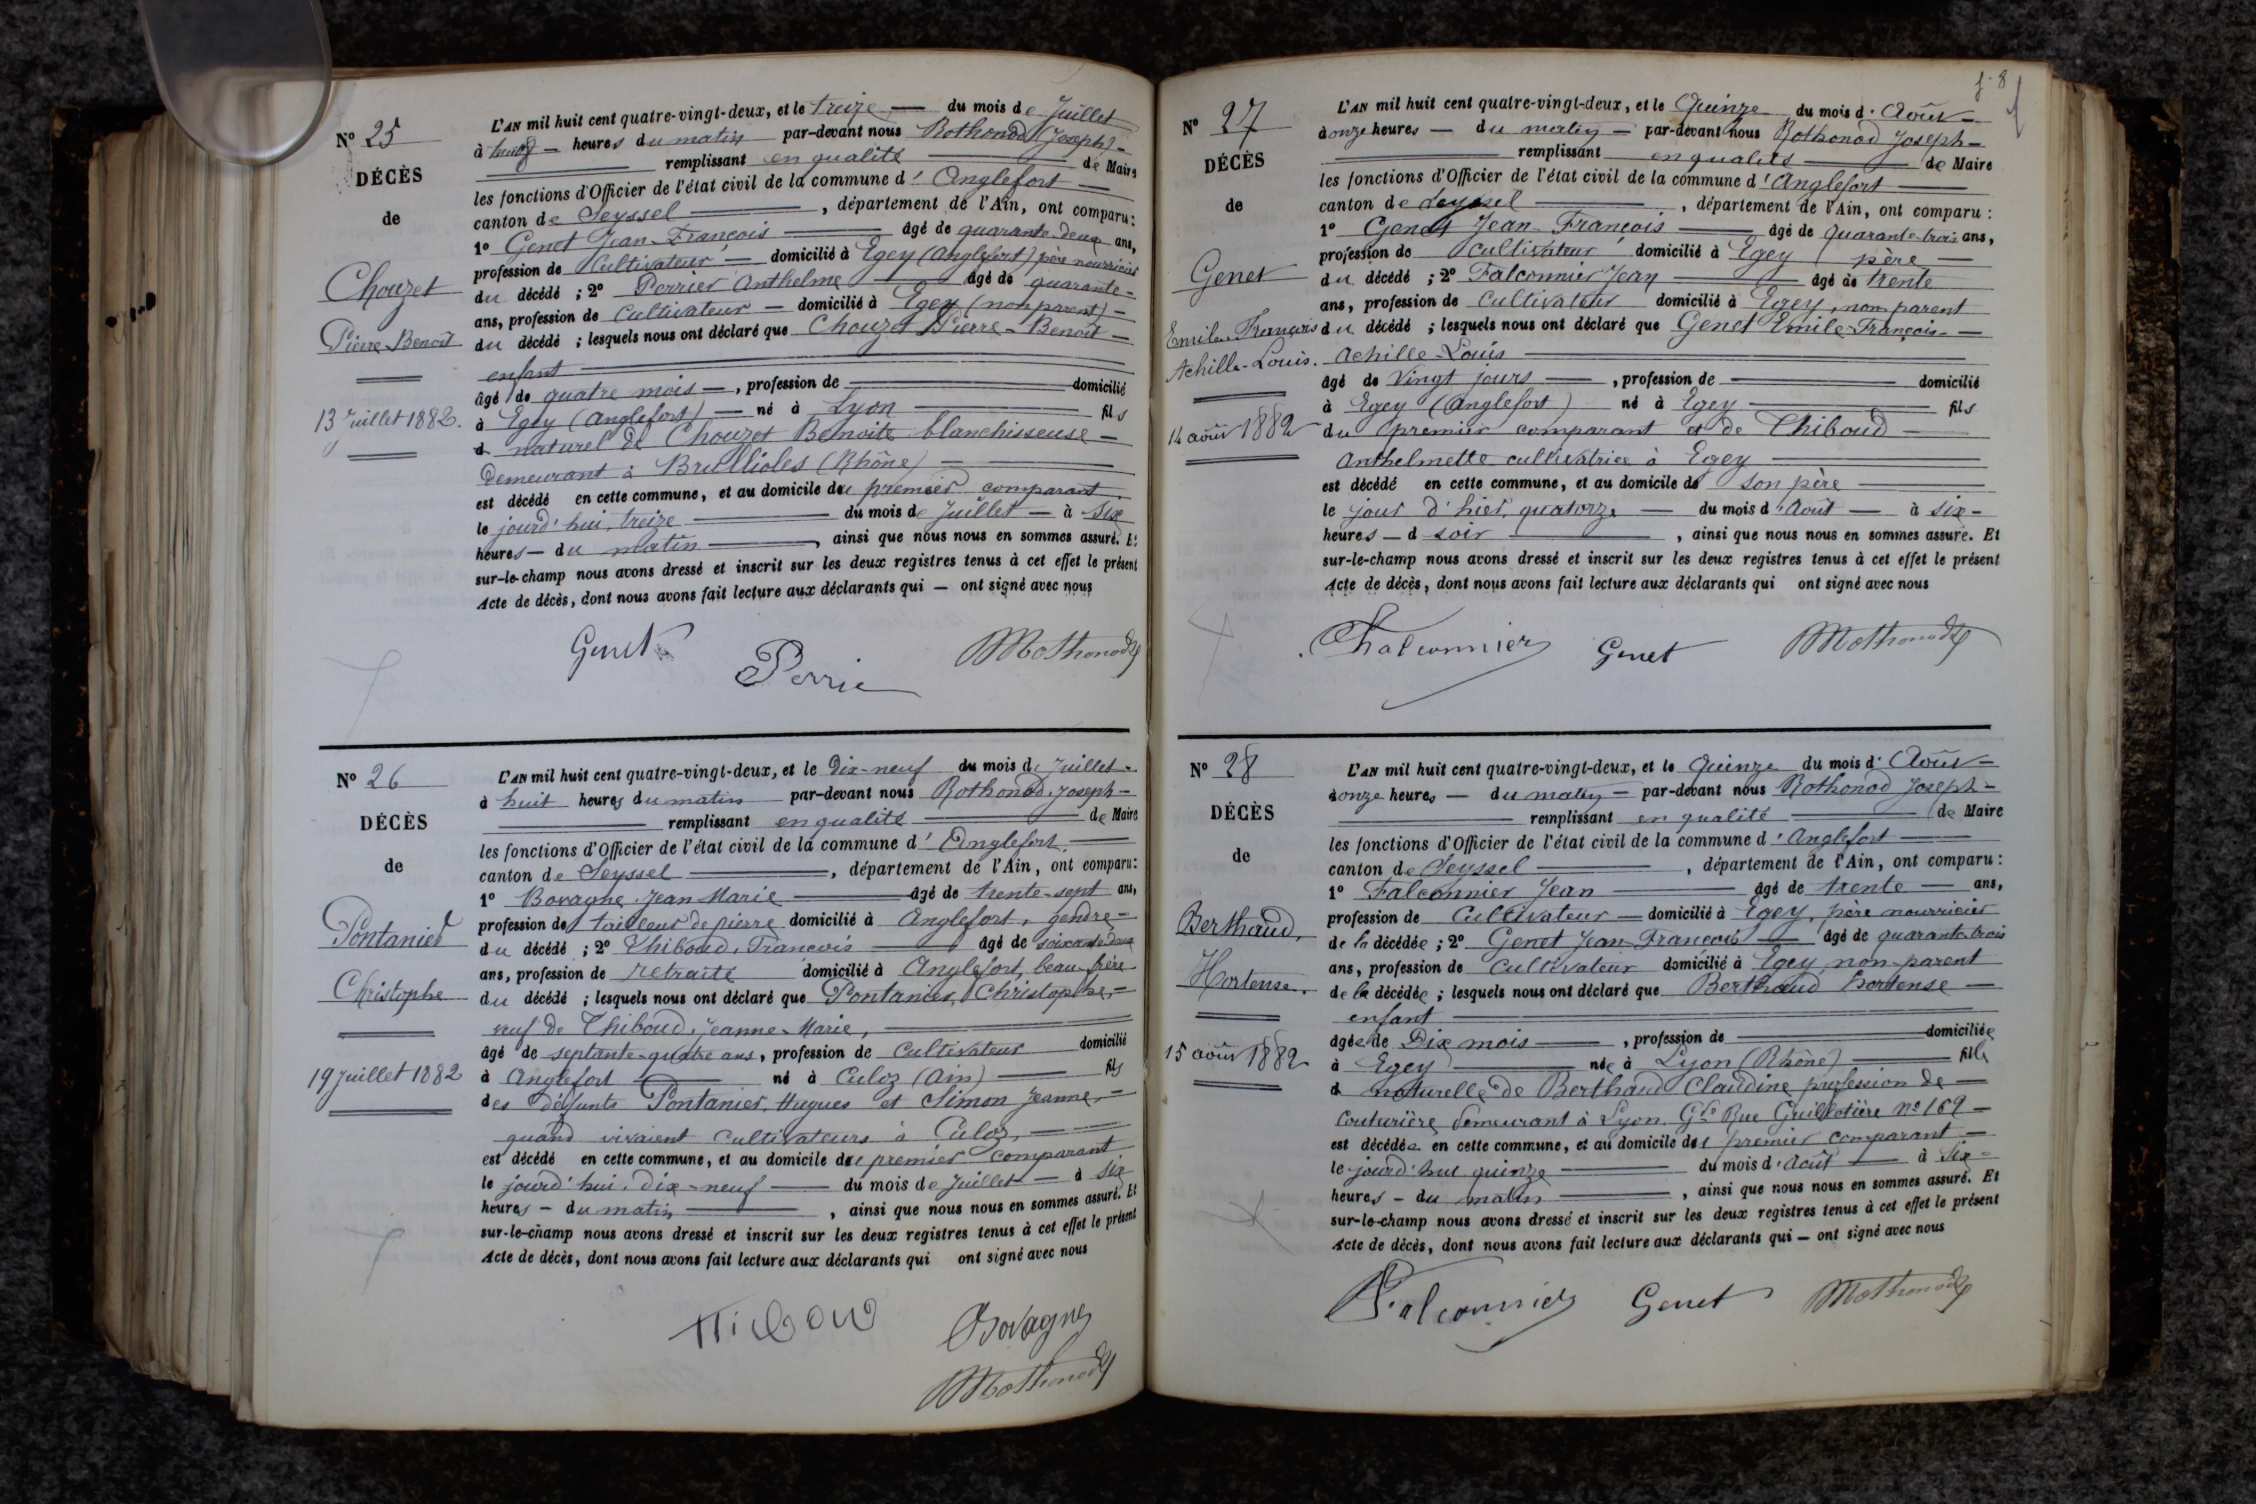 N° 25
DÉCÈS
de
Chouzet
Pierre-Benoit
13 Juillet 1882.
L'AN mil huit cent quatre-vingt-deux, et le treize — du mois de Juillet
à — heures du matin par-devant nous Rothonod Joseph —
remplissant en qualité de Maire
les fonctions d'Officier de l'état civil de la commune d'Anglefort
canton de Seyssel, département de l'Ain, ont comparu:
1° Genet Jean-François âgé de quarante-deux ans,
profession de Cultivateur — domicilié à Egey (Anglefort) père nourricier
du décédé ; 2° Perrier Anthelme âgé de quarante-
ans, profession de Cultivateur — domicilié à Egey (non parent) —
du décédé ; lesquels nous ont déclaré que Chouzet Pierre-Benoit —
enfant
âgé de quatre mois —, profession de domicilié
à Egey (Anglefort) — né à Lyon fils
d naturel de Chouzet Benoite blanchisseuse —
Demeurant à Brullioles (Rhône)
est décédé en cette commune, et au domicile du premier comparant
le jourd'hui, treize du mois de Juillet — à six
heures — du matin, ainsi que nous nous en sommes assuré. Et
sur-le-champ nous avons dressé et inscrit sur les deux registres tenus à cet effet le présent
Acte de décès, dont nous avons fait lecture aux déclarants qui — ont signé avec nous
Genet
Perrier
Rothonod
N° 26
DÉCÈS
de
Pontanier
Christophe
19 Juillet 1882
L'AN mil huit cent quatre-vingt-deux, et le Dix-neuf du mois de Juillet -
à huit heures du matin par-devant nous Rothonod, Joseph —
remplissant en qualité de Maire
les fonctions d'Officier de l'état civil de la commune d'Anglefort,
canton de Seyssel, département de l'Ain, ont comparu:
1° Bovagne Jean Marie âgé de trente-sept ans,
profession de tailleur de pierre domicilié à Anglefort, gendre-
du décédé ; 2° Thiboud, François âgé de soixante-deux
ans, profession de retraité domicilié à Anglefort, beau-frère
du décédé ; lesquels nous ont déclaré que Pontanier, Christophe,
veuf de Thiboud, Jeanne-Marie,
âgé de septante-quatre ans, profession de Cultivateur domicilié
à Anglefort né à Culoz (Ain) fils
des défunts Pontanier, Hugues et Simon Jeanne,
quand vivaient cultivateurs à Culoz,
est décédé en cette commune, et au domicile du premier comparant
le jourd'hui, dix-neuf du mois de Juillet — à six
heures — du matin, ainsi que nous nous en sommes assuré. Et
sur-le-champ nous avons dressé et inscrit sur les deux registres tenus à cet effet le présent
Acte de décès, dont nous avons fait lecture aux déclarants qui ont signé avec nous
Thiboud
Bovagne
Rothonod
f. 8
N° 27
DÉCÈS
de
Genet
Emile-François
Achille-Louis.
14 août 1882
L'AN mil huit cent quatre-vingt-deux, et le Quinze du mois d'Août —
à onze heures — du matin — par-devant nous Rothonod Joseph —
remplissant en qualité de Maire
les fonctions d'Officier de l'état civil de la commune d'Anglefort
canton de Seyssel, département de l'Ain, ont comparu :
1° Genet Jean-François âgé de quarante-trois ans,
profession de Cultivateur domicilié à Egey père —
du décédé ; 2° Falconnier Jean âgé de trente
ans, profession de Cultivateur domicilié à Egey, non parent
du décédé ; lesquels nous ont déclaré que Genet Emile-François —
Achille-Louis
âgé de Vingt jours —, profession de domicilié
à Egey (Anglefort) né à Egey fils
du premier comparant et de Thiboud
Anthelmette cultivatrice à Egey
est décédé en cette commune, et au domicile de son père
le jour d'hier, quatorze — du mois d'Août — à six —
heures — d soir, ainsi que nous nous en sommes assuré. Et
sur-le-champ nous avons dressé et inscrit sur les deux registres tenus à cet effet le présent
Acte de décès, dont nous avons fait lecture aux déclarants qui ont signé avec nous
Falconnier
Genet
Rothonod
N° 28
DÉCÈS
de
Berthaud,
Hortense.
15 août 1882
L'AN mil huit cent quatre-vingt-deux, et le Quinze du mois d'Août —
à onze heures — du matin — par-devant nous Rothonod Joseph —
remplissant en qualité de Maire
les fonctions d'Officier de l'état civil de la commune d'Anglefort
canton de Seyssel, département de l'Ain, ont comparu :
1° Falconnier Jean âgé de trente — ans,
profession de Cultivateur — domicilié à Egey, père nourricier
de la décédée ; 2° Genet Jean-François âgé de quarante-trois
ans, profession de Cultivateur domicilié à Egey non-parent
de la décédée ; lesquels nous ont déclaré que Berthaud Hortense —
enfant
âgée de Dix mois, profession de domiciliée
à Egey née à Lyon (Rhône) fille
d naturelle de Berthaud Claudine profession de —
Couturière demeurant à Lyon. Gde Rue Guillotière N° 169 —
est décédée en cette commune, et au domicile du premier comparant —
le jourd'hui quinze du mois d'Août — à six —
heures — du matin, ainsi que nous nous en sommes assuré. Et
sur-le-champ nous avons dressé et inscrit sur les deux registres tenus à cet effet le présent
Acte de décès, dont nous avons fait lecture aux déclarants qui — ont signé avec nous
Falconnier
Genet
Rothonod